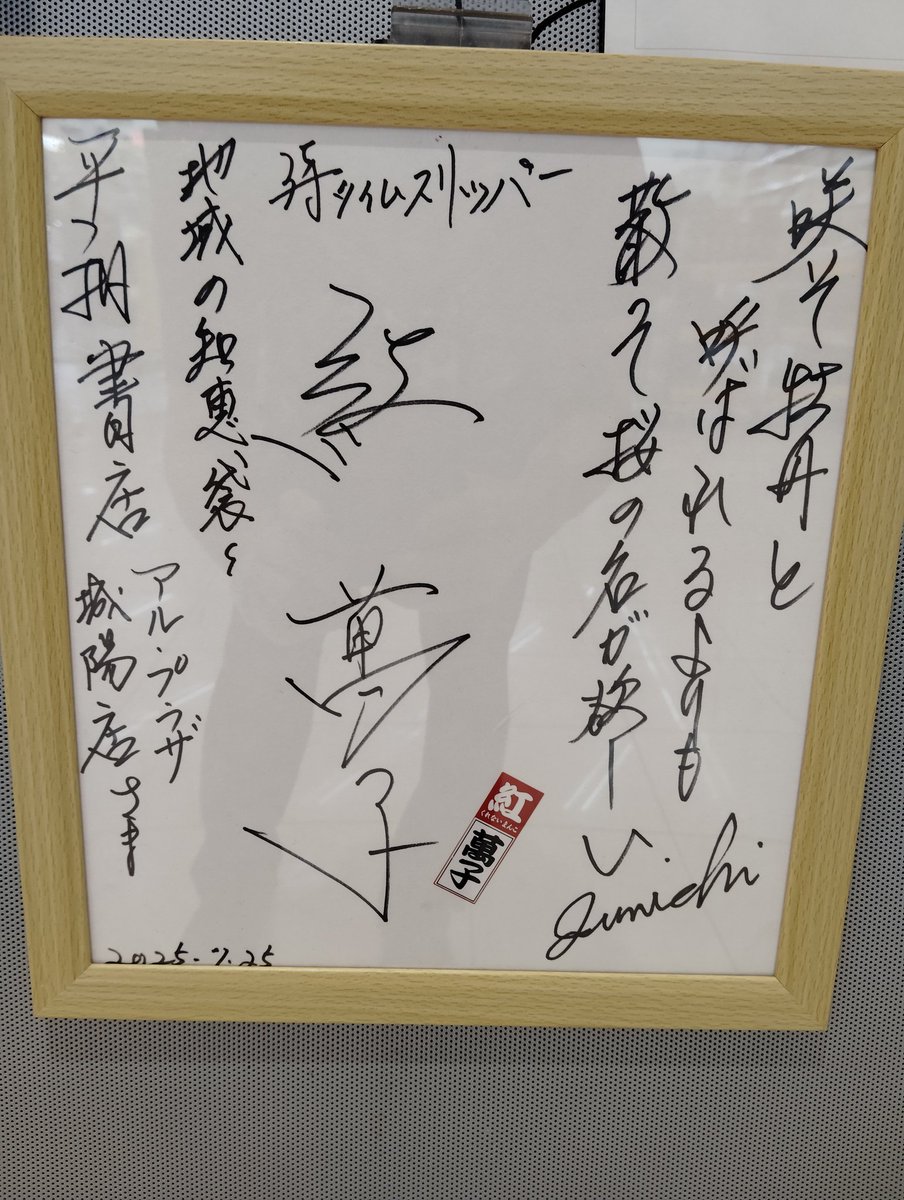 咲て牡丹と
呼ばれるよりも
散て桜の名が欲しい
Junichi
侍タイムスリッパー
紅 萬子
紅
くれないまんこ
萬子
地域の知恵袋
平和書店
アルプラザ
城陽店さま
2025.7.25